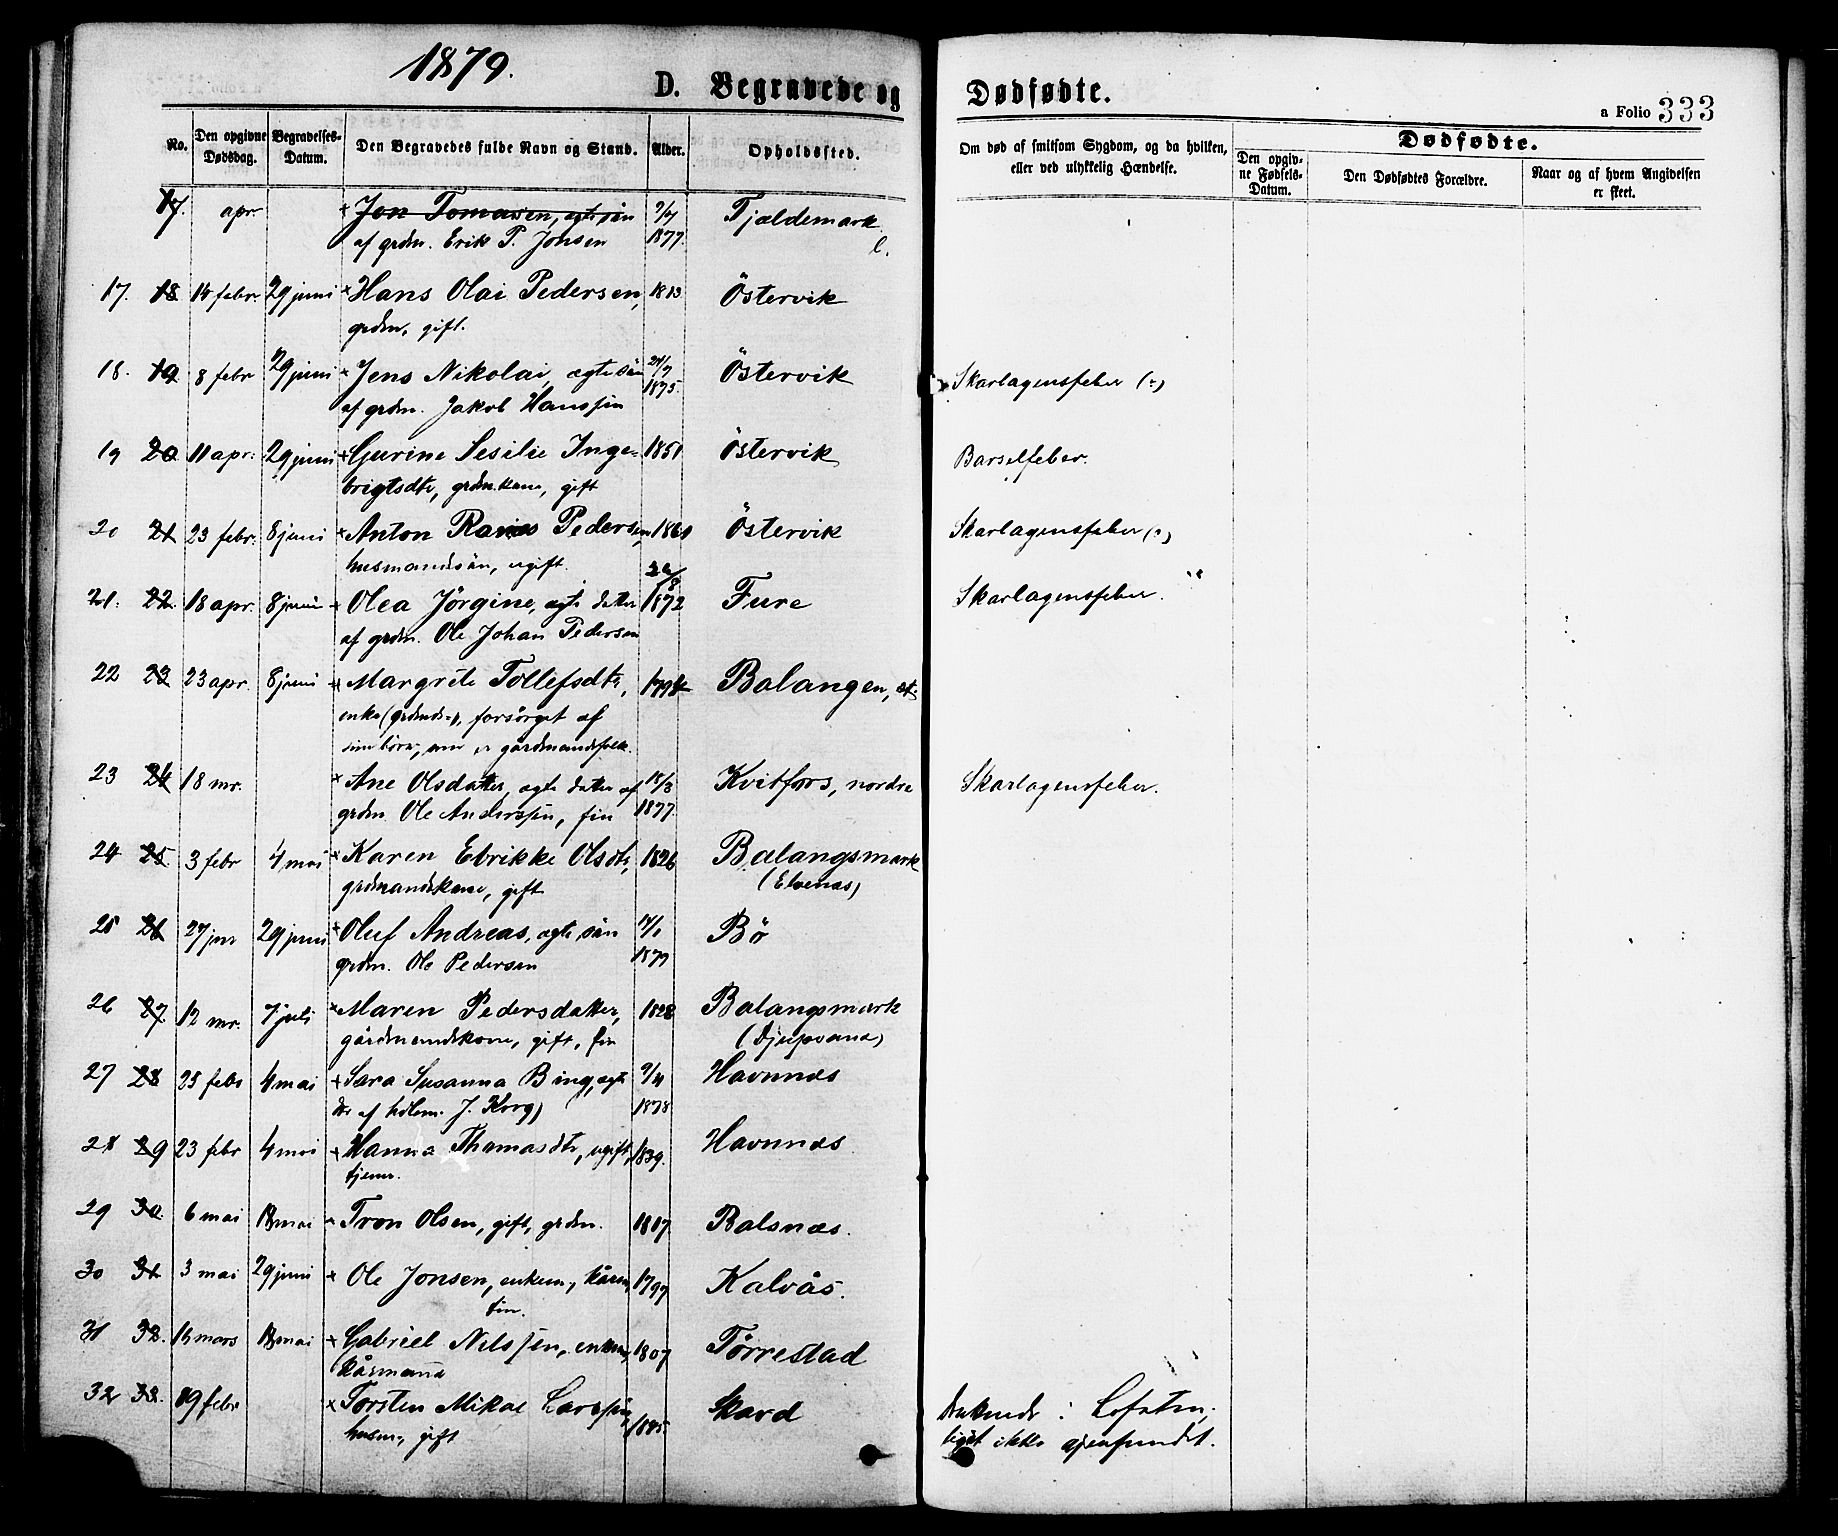 1879.
D. Begravede og Dødfødte.
a Folio 333
No. Den opgivne Dødsdag. Begravelses-Datum. Den Begravedes fulde Navn og Stand. Alder. Opholdssted. Om død af smitsom Sygdom, og da hvilken, eller ved ulykkelig Hændelse. Dødfødte.
Den opgivne Fødsels-Datum. Den Dødfødtes Forældre. Naar og af hvem Angivelsen er skeet.
17. apr. Jon Tomasen, ægte søn 9/7 Fjældemark
af grdm. Erik P. Jonsen 1877. l.
17. 18 14 febr. 29 juni Hans Olai Pedersen, 1813 Östervik
grdm, gift.
18. 19 8 febr 29 juni Jens Nikolai, ægte søn 24/7 Östervik Skarlagensfeber (?)
af grdm. Jakob Hanssen 1875.
19 20 11 apr. 29 juni Gurine Sesilie Inge- 1851 Östervik Barselfeber.
brigtsdtr, grdm.kone, gift
20 21 23 febr. 8 juni Anton Pedersen 1861 Östervik Skarlagensfeber (?)
husmandsön, ugift.
21. 22. 18 apr. 8 juni Olea Jörgine, ægte datter 1872 Fure Skarlagensfeber.
af grdm. Ole Johan Pedersen
22 23 23 apr. 8 juni Margrete Tollefsdtr, Balangen,
enke, forsörget af
sine börn, som er gårdmandsfolk.
23 24 18 mr. Ane Olsdatter, ægte datter af 18/3 Kvitfors, nordre Skarlagensfeber.
grdm. Ole Anderssen, fin 1877.
24 25 3 febr 4 mai Karen Elrikke Olsdtr, 1826 Balangsmark
grdmandskone, gift (Elvenæs)
25 26 27 jan 29 juni Oluf Andreas, ægte sön 14/1 Bö
grdm. Ole Pedersen 1879
26 27. 12 mr. 7 juli Maren Pedersdatter, 1828 Balangsmark
gårdmandskone, gift, fin (Djupvand)
27 28 25 febr 4 mai Sara Susanna Bing, ægte 9/4 Havnnæs
dtr af hdlsm. J. Krog) 1878
28 29 23 febr 4 mai Hanna Thomasdtr, ugift, 1839. Havnnæs
tjener.
29 30. 6 mai mai Tron Olsen, gift, grdm. 1817 Balsnæs.
30 31 3 mai 29 juni Ole Jonsen, enkem., kårm, 1797 Kalvås.
fin.
31 32. 16 mars mai Gabriel Nilssen, enkem, 1807 Tørrestad
kårmand
32 33. 19 febr Torsten Mikal Larssen, 1845. Skard Druknede i Lofoten;
husm, gift liget ikke gjenfundet.